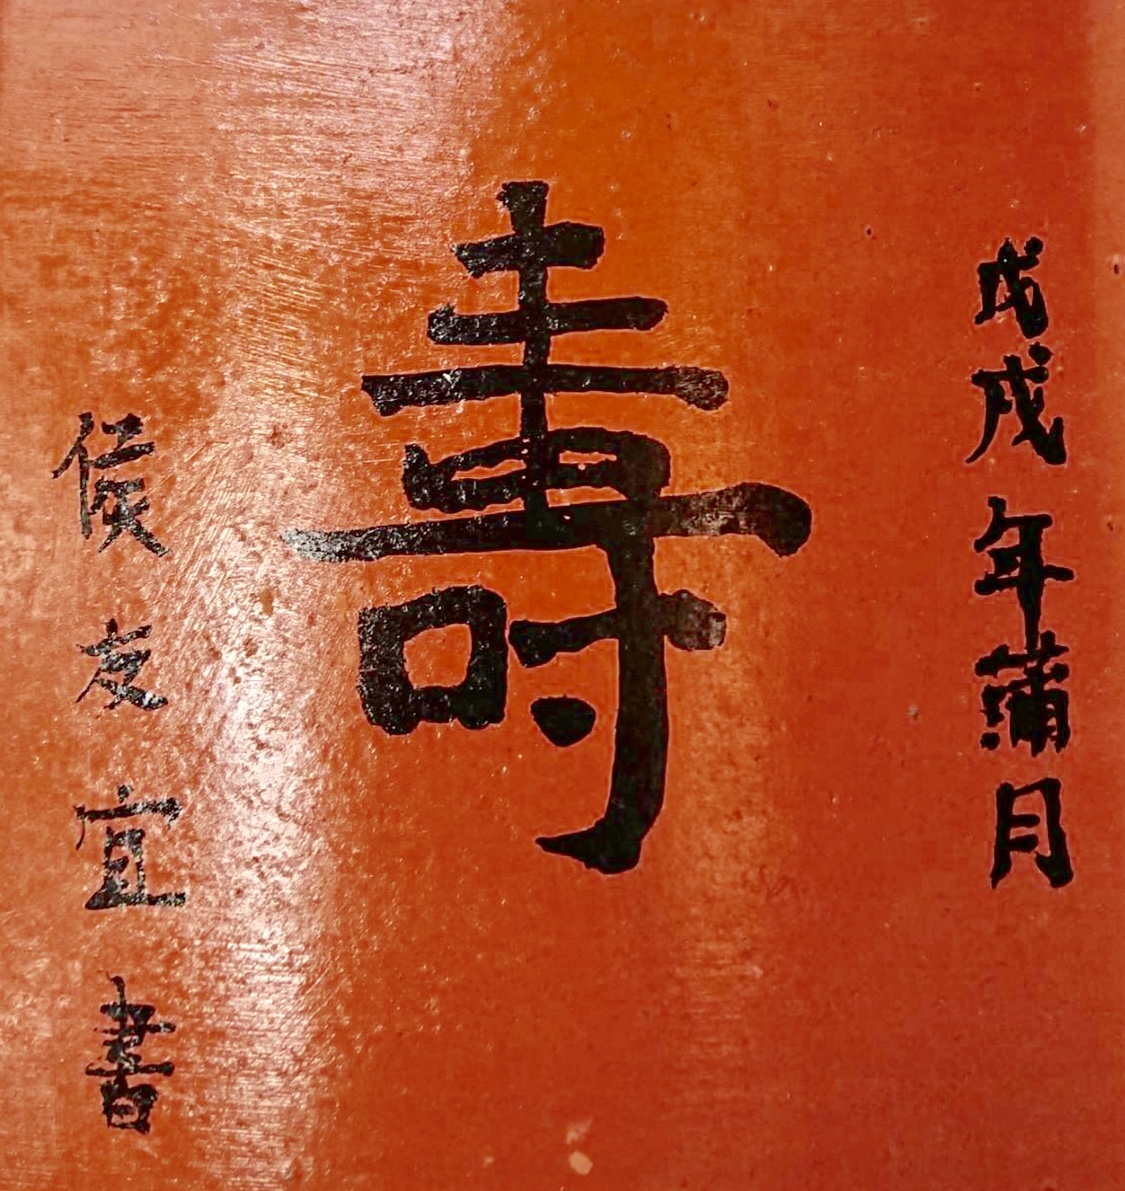 戊戌年蒲月
壽
侯友宜書